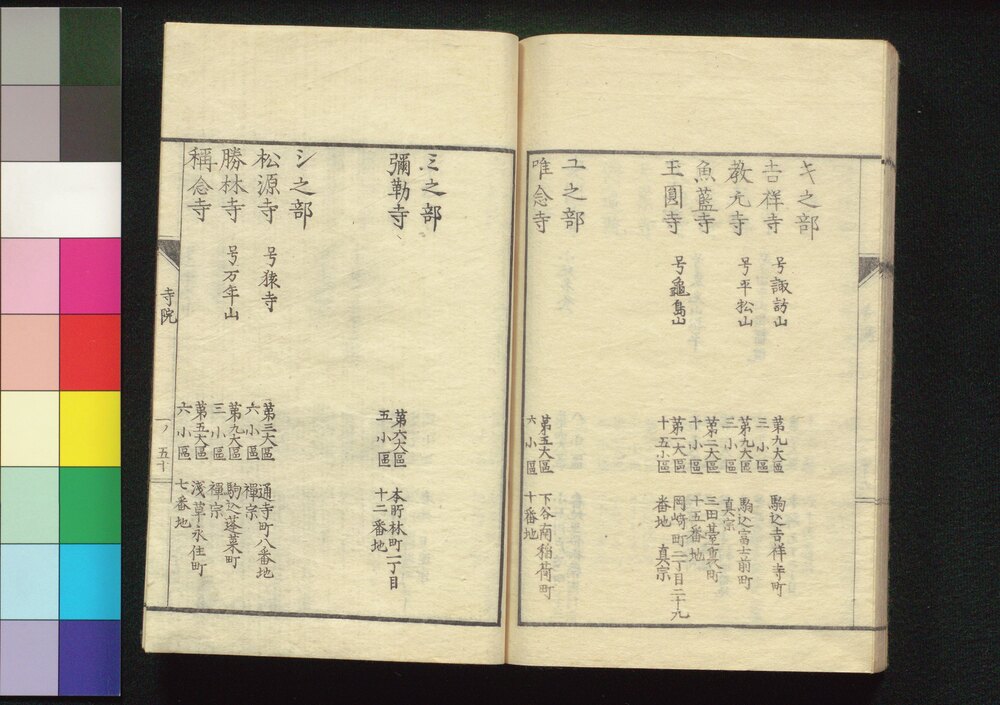 キ之部
吉祥寺 号諏訪山 第九大區三小區 駒込吉祥寺町
教元寺 号平松山 第九大區三小區 駒込富士前町 真宗
魚藍寺 第二大區十小區 三田臺裏町十五番地
玉圓寺 号龜島山 第一大區十五小區 岡崎町二丁目二十九番地 真宗
ユ之部
唯念寺 第五大區六小區 下谷南稲荷町十番地
ミ之部
彌勒寺 第六大區五小區 本所林町一丁目十二番地
シ之部
松源寺 号猿寺 第三大區六小區 通寺町八番地 禪宗
勝林寺 号万年山 第九大區三小區 駒込蓬莱町 禪宗
稱念寺 第五大區六小區 浅草永住町七番地
寺院
一ノ五十